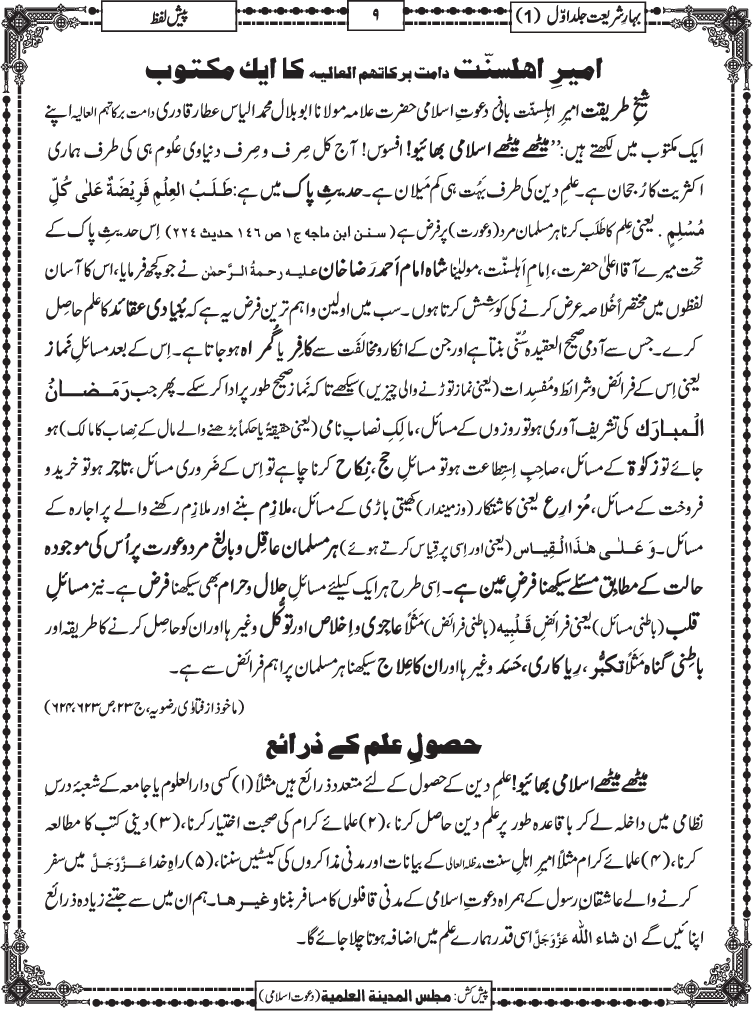 بہارِ شریعت جلد اوّل (1)
۹
پیش لفظ
امیرِ اھلسنّت دامت برکاتھم العالیه کا ایک مکتوب
شیخِ طریقت امیرِ اہلسنت بانیٔ دعوتِ اسلامی حضرت علامہ مولانا ابو بلال محمد الیاس عطار قادری دامت برکاتہم العالیہ اپنے
ایک مکتوب میں لکھتے ہیں: ’’میٹھے میٹھے اسلامی بھائیو! افسوس! آج کل صِرف و صِرف دنیاوی عُلوم ہی کی طرف ہماری
اکثریت کا رُجحان ہے۔ علمِ دین کی طرف بَہُت ہی کم مَیلان ہے۔ حدیثِ پاک میں ہے: طَلَبُ الْعِلْمِ فَرِيْضَةٌ عَلٰى كُلِّ
مُسْلِمٍ . یعنی عِلم کا طَلَب کرنا ہر مسلمان مرد (و عورت) پر فرض ہے (سنن ابن ماجه ج۱ ص ۱٤٦ حديث ۲۲٤) اِس حدیثِ پاک کے
تحت میرے آقا اعلیٰ حضرت، اِمامِ اَہلسنّت، مولیٰنا شاہ امام اَحمد رَضا خان علیہ رحمۃُ الرَّحمٰن نے جو کچھ فرمایا، اس کا آسان
لفظوں میں مختصراً خُلاصہ عرض کرنے کی کوشِش کرتا ہوں۔ سب میں اولین و اہم ترین فرض یہ ہے کہ بُنیادی عقائد کا علم حاصل
کرے۔ جس سے آدمی صحیح العقیدہ سُنّی بنتا ہے اور جن کے انکار و مخالَفَت سے کافِر یا گُمراہ ہو جاتا ہے۔ اِس کے بعد مسائلِ نَماز
یعنی اِس کے فرائض و شرائط و مُفسِدات (یعنی نماز توڑنے والی چیزیں) سیکھے تاکہ نَماز صحیح طور پر ادا کر سکے۔ پھر جب رَمَضانُ
الْمبارَک کی تشریف آوری ہو تو روزوں کے مسائل، مالِکِ نصابِ نامی (یعنی حقیقۃً یا حکماً بڑھنے والے مال کے نِصاب کا مالک) ہو
جائے تو زکوٰۃ کے مسائل، صاحبِ اِستِطاعت ہو تو مسائلِ حج، نِکاح کرنا چاہے تو اِس کے ضَروری مسائل، تاجِر ہو تو خرید و
فروخت کے مسائل، مُزارِع یعنی کاشتکار (و زمیندار) کھیتی باڑی کے مسائل، ملازِم بننے اور ملازِم رکھنے والے پر اجارہ کے
مسائل۔ وَ عَلٰی ھٰذَا الْقِیاس (یعنی اور اِسی پر قِیاس کرتے ہوئے) ہر مسلمان عاقِل و بالِغ مرد و عورت پر اُس کی موجودہ
حالت کے مطابق مسئلے سیکھنا فرضِ عین ہے۔ اِسی طرح ہر ایک کیلئے مسائلِ حلال و حرام بھی سیکھنا فرض ہے۔ نیز مسائلِ
قلب (باطنی مسائل) یعنی فرائضِ قَلْبِیہ (باطنی فرائض) مَثَلاً عاجِزی و اِخلاص اور توکُّل وغیرہا اور ان کو حاصِل کرنے کا طریقہ اور
باطِنی گناہ مَثَلاً تکبُّر، رِیاکاری، حَسَد وغیرہا اور ان کا عِلاج سیکھنا ہر مسلمان پر اہم فرائض سے ہے۔
(ماخوذ از فتاوٰی رضویہ، ج۲۳، ص ۶۲۳، ۶۲۴)
حصولِ علم کے ذرائع
میٹھے میٹھے اسلامی بھائیو! علمِ دین کے حصول کے لئے متعدد ذرائع ہیں مثلاً (۱) کسی دارالعلوم یا جامعہ کے شعبۂ درسِ
نظامی میں داخلہ لے کر باقاعدہ طور پر علم دین حاصل کرنا، (۲) علمائے کرام کی صحبت اختیار کرنا، (۳) دینی کتب کا مطالعہ
کرنا، (۴) علمائے کرام مثلاً امیرِ اہلِ سنت مدظلہ العالی کے بیانات اور مدنی مذاکروں کی کیسٹیں سننا، (۵) راہِ خدا عَزَّوَجَلَّ میں سفر
کرنے والے عاشقانِ رسول کے ہمراہ دعوتِ اسلامی کے مدنی قافلوں کا مسافر بننا وغیرھا۔ ہم ان میں سے جتنے زیادہ ذرائع
اپنائیں گے ان شاء اللہ عَزَّوَجَلَّ اسی قدر ہمارے علم میں اضافہ ہوتا چلا جائے گا۔
پیش کش: مجلس المدینة العلمیة (دعوتِ اسلامی)